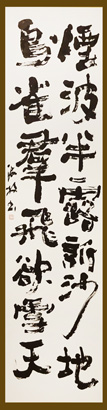 煙波半露新沙地
鳥雀群飛欲雪天